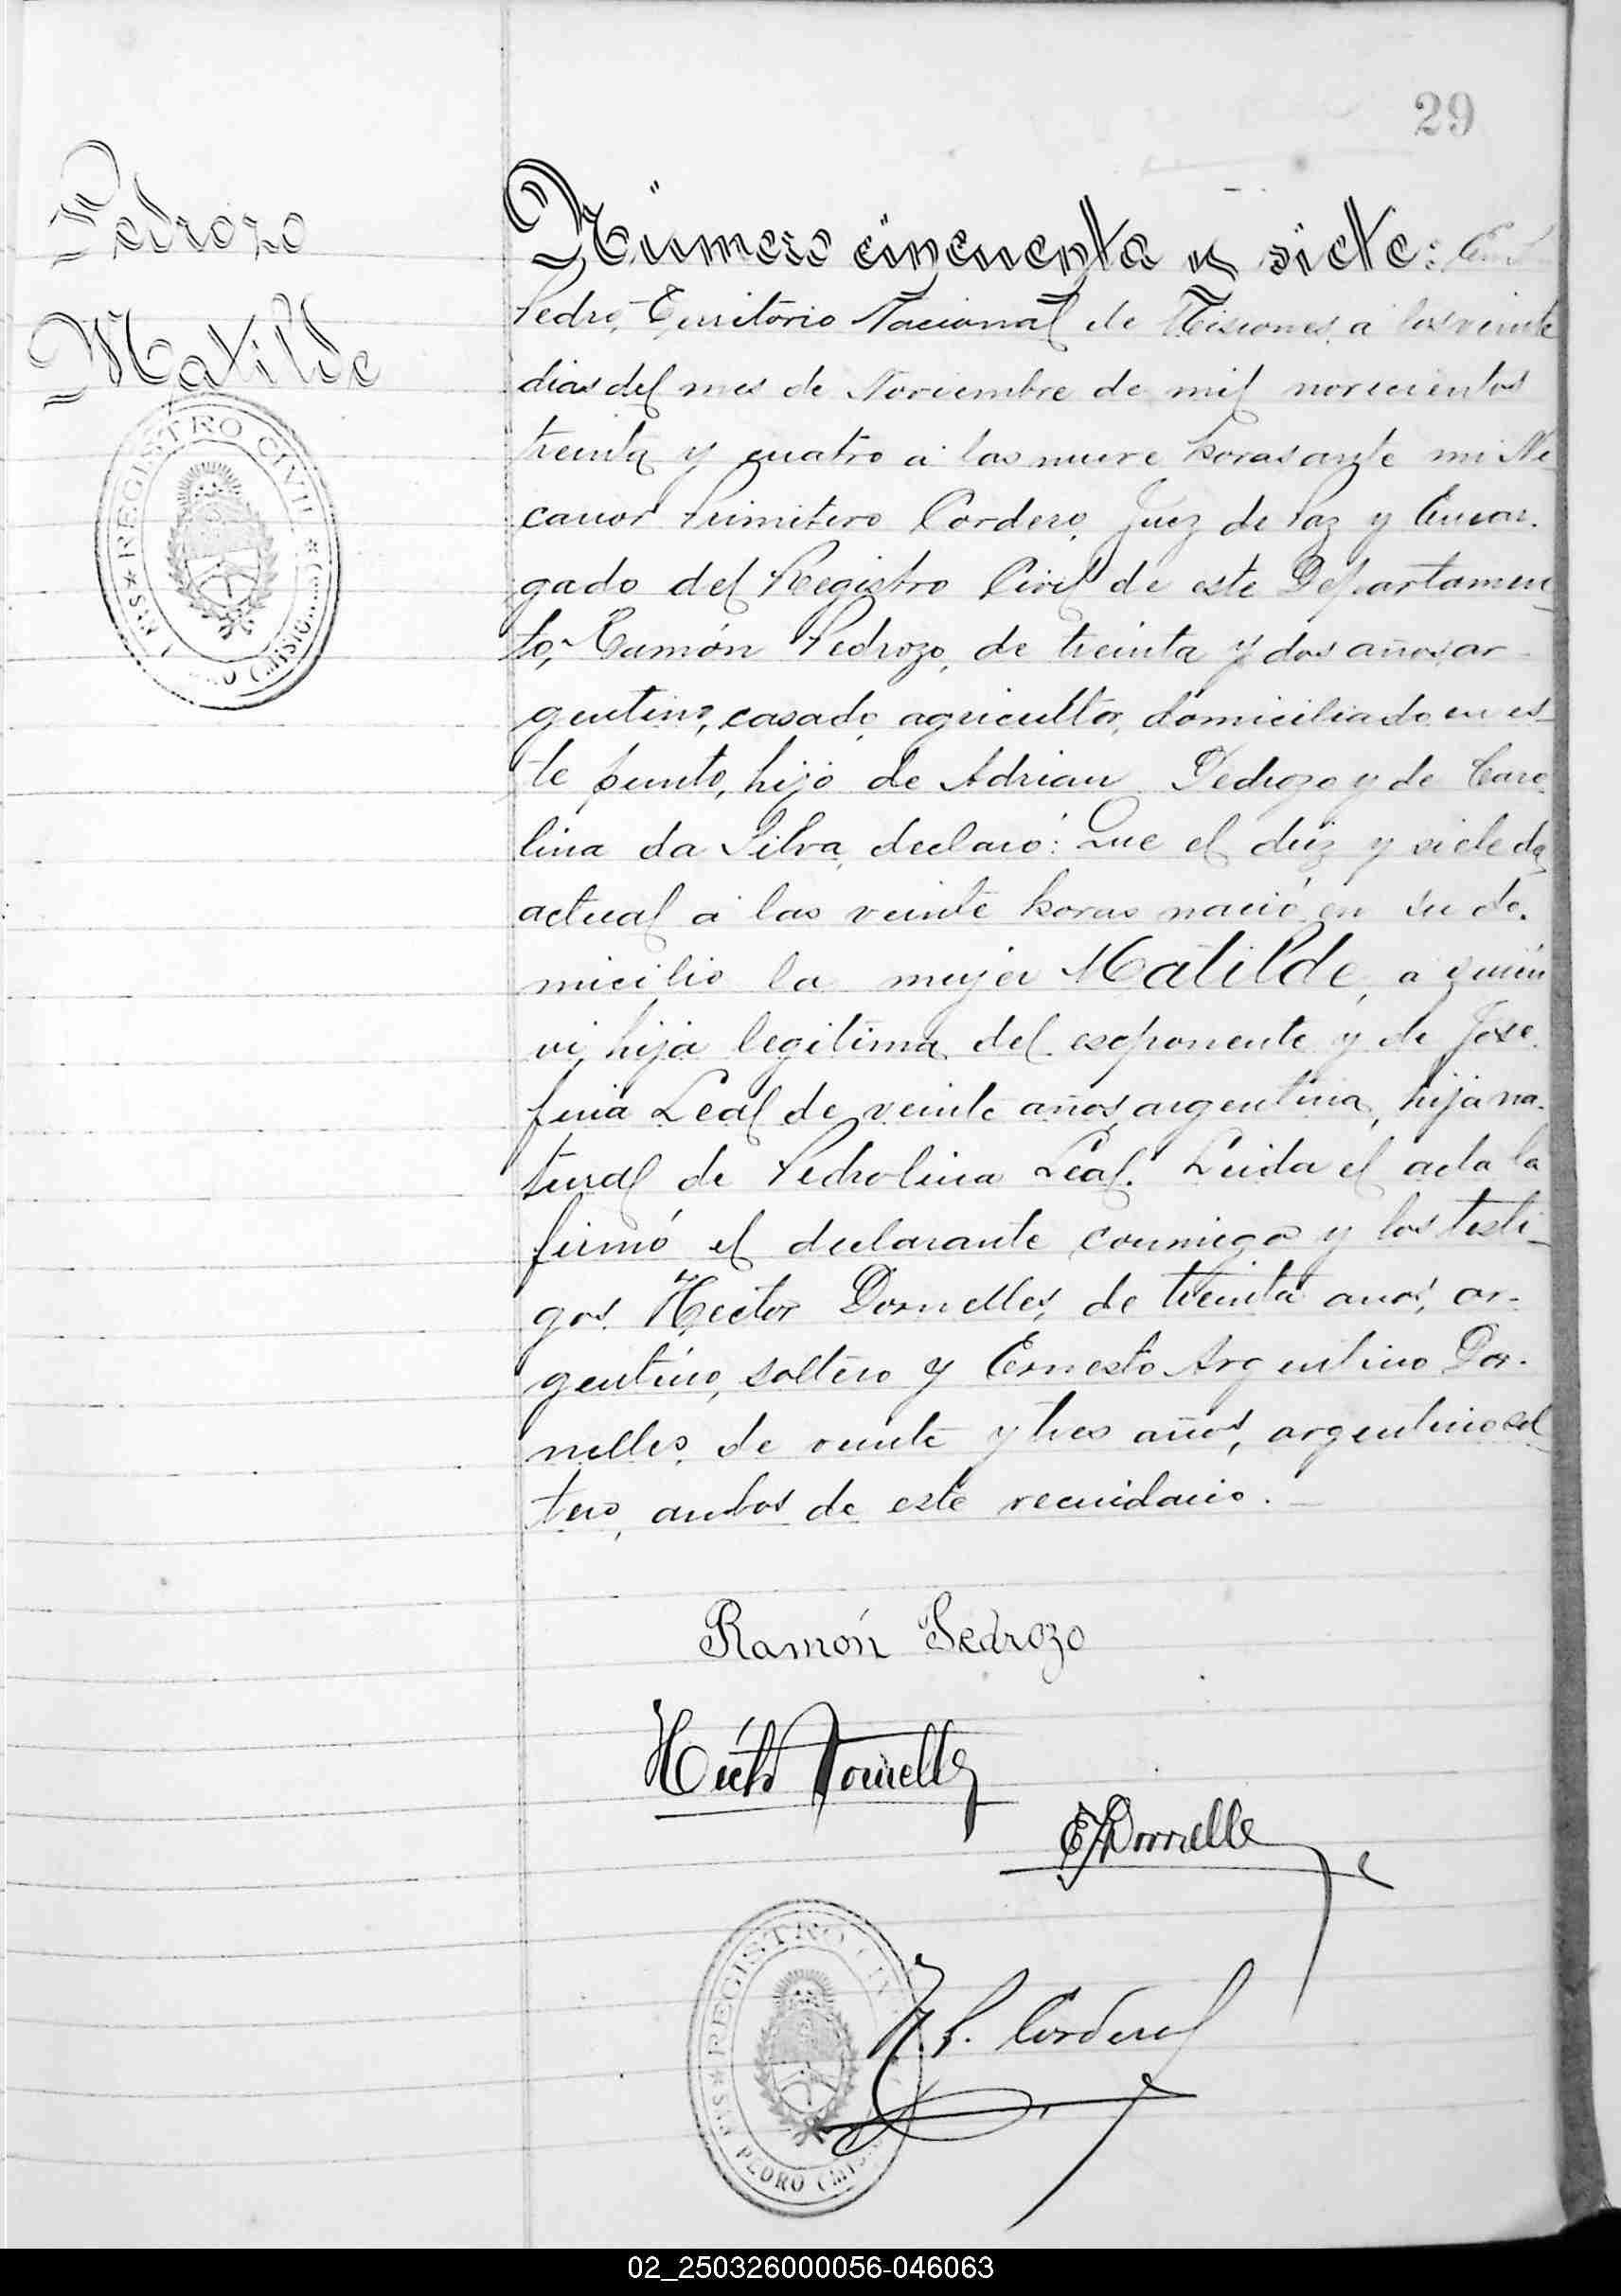 29
Pedrozo
Matilde
REGISTRO CIVIL
Número cincuenta y siete: En S
Pedro, Territorio Nacional de Misiones, a los veinte
dias del mes de Noviembre de mil novecientos
treinta y cuatro a las nueve horas ante mi Ni
canor Primitivo Cordero, Juez de Paz y Encar-
gado del Registro Civil de este Departamen
to, Ramón Pedrozo, de treinta y dos años, ar-
gentino, casado, agricultor, domiciliado en es-
te punto, hijo de Adrian Pedrozo y de Caro
lina da Silva, declaró: Que el diez y siete del
actual a las veinte horas nació en su do-
micilio la mujer Matilde, a quien
vi, hija legitima del exponente y de Jose-
fina Leal de veinte años, argentina, hija na-
tural de Pedrolina Leal. Leida el acta la
firmó el declarante conmigo y los testi-
gos Hector Dornelles, de treinta anos, ar-
gentino, soltero y Ernesto Argentino Dor-
nelles, de veinte y tres años, argentino sol
tero, ambos de este vecindario. -
Ramón Pedrozo
Héctor Dornelles
E A Dornelles
REGISTRO CIVIL
N. P. Cordero
SAN PEDRO (MIS
02_250326000056-046063